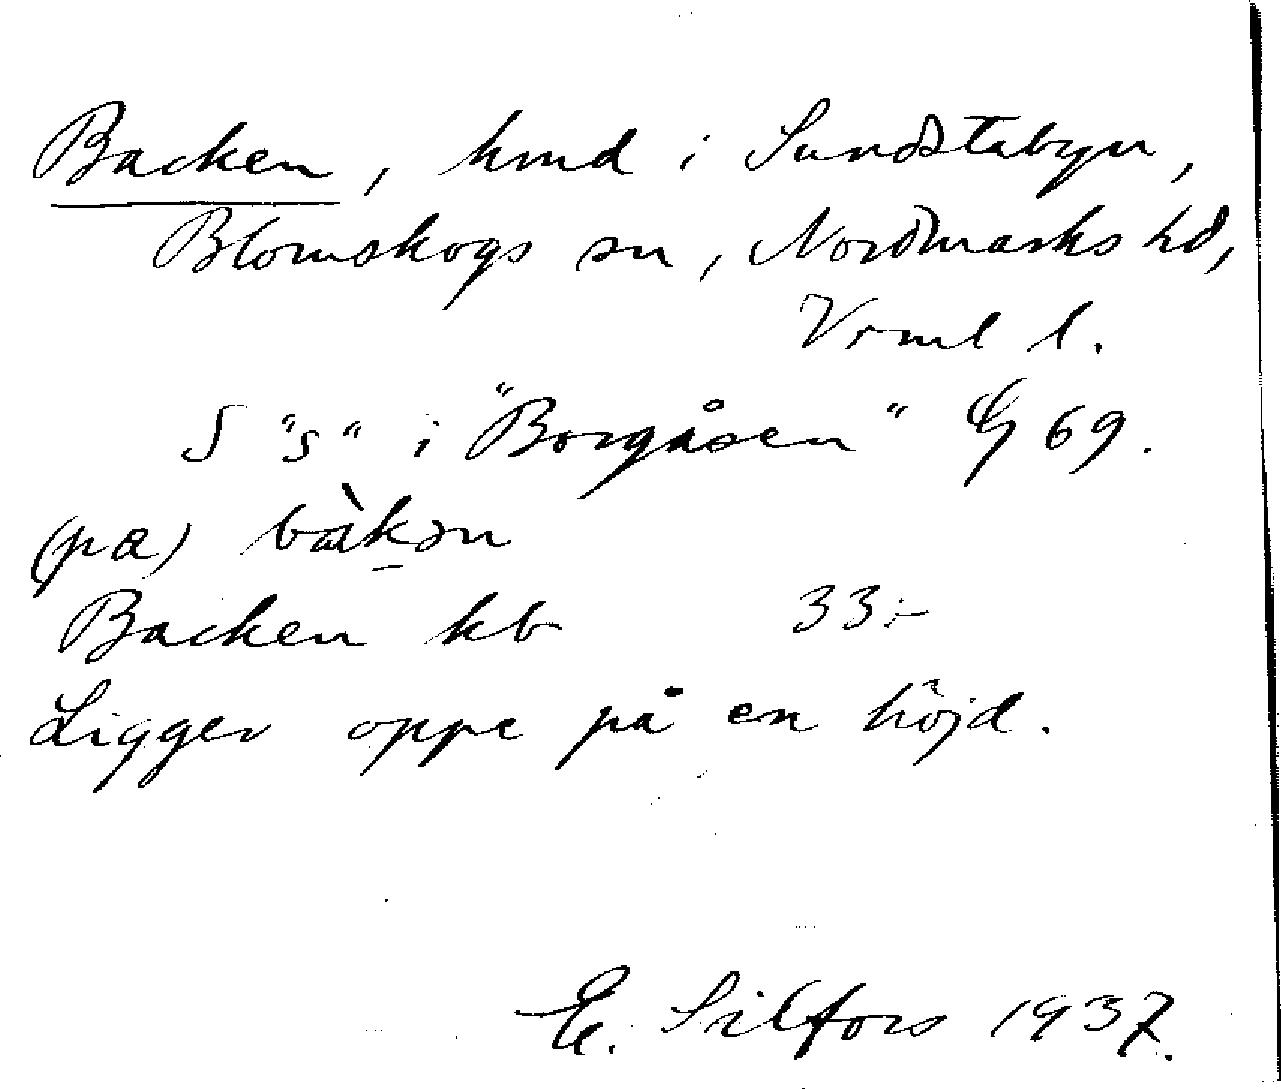 Backen, hmd i Sundstabyn,
Blomskogs sn, Nordmarks hd,
Vrml l.
S "s" i "Borgåsen" G 69.
(pa) bàkən
Backen kb 33:-
Ligger oppe på en höjd.
E. Silfors 1937.